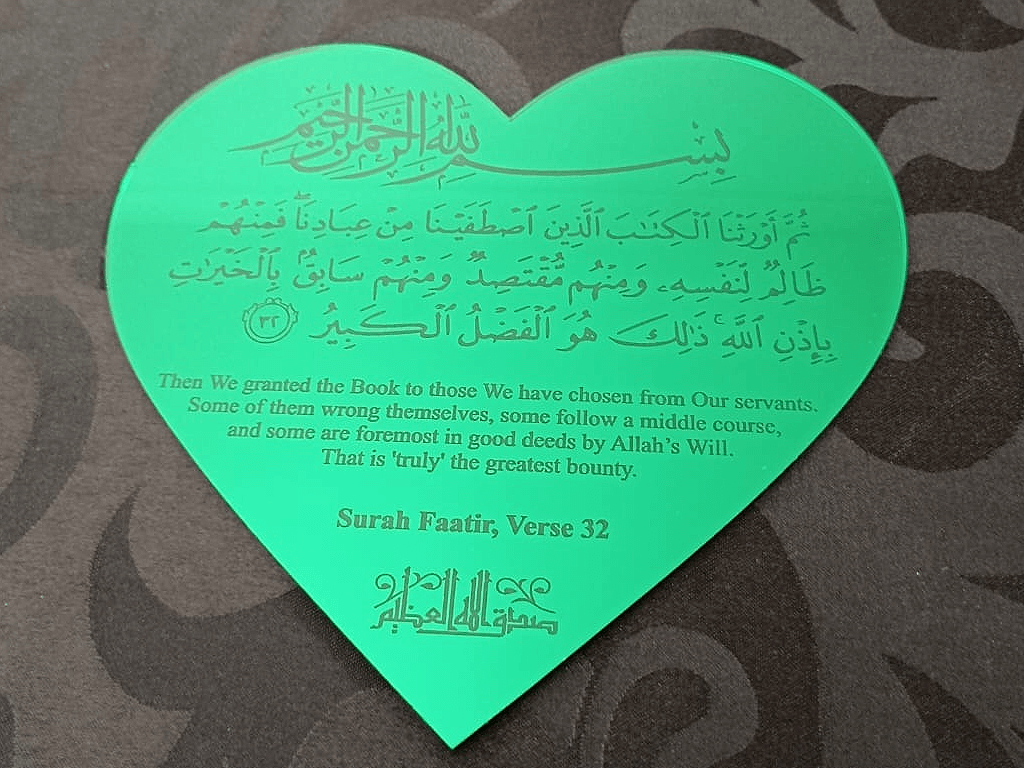 بِسْمِ اللَّهِ الرَّحْمَٰنِ الرَّحِيمِ
ثُمَّ أَوْرَثْنَا ٱلْكِتَٰبَ ٱلَّذِينَ ٱصْطَفَيْنَا مِنْ عِبَادِنَا ۖ فَمِنْهُمْ
ظَالِمٌ لِّنَفْسِهِۦ وَمِنْهُم مُّقْتَصِدٌ وَمِنْهُمْ سَابِقٌۢ بِٱلْخَيْرَٰتِ
بِإِذْنِ ٱللَّهِ ۚ ذَٰلِكَ هُوَ ٱلْفَضْلُ ٱلْكَبِيرُ ٣٢
Then We granted the Book to those We have chosen from Our servants.
Some of them wrong themselves, some follow a middle course,
and some are foremost in good deeds by Allah's Will.
That is 'truly' the greatest bounty.
Surah Faatir, Verse 32
صدق الله العظيم